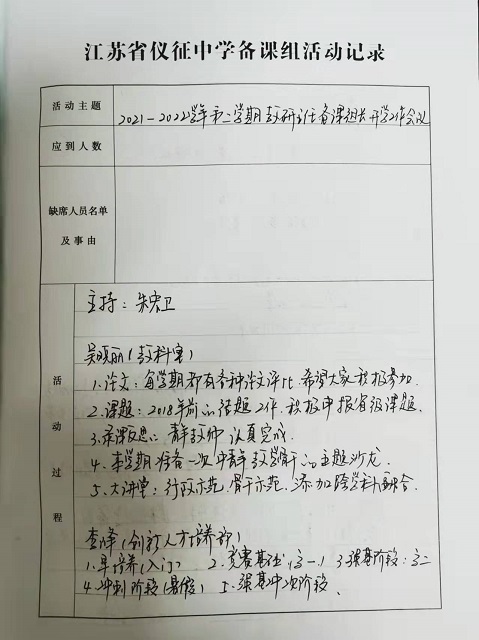 江苏省仪征中学备课组活动记录
活动主题
2021-2022学年第二学期教研主任备课组长开学工作会议
应到人数
缺席人员名单
及事由
活动过程
主持：朱宏卫
吴晓丽(教科室)
1.论文：每学期都有各种论文评比.希望大家积极参加.
2.课题：2018年前的结题工作.积极申报省级课题.
3.录课反思：青教师认真完成.
4.本学期准备一次中青教学骨干的主题沙龙.
5.大讲堂：行政示范.骨干示范.添加跨学科融合.
李峰(创新人才培养)
1.早培养(入门) 2.竞赛基础(高一) 3.强基阶段：高二
4.冲刺阶段(暑假) 5.强基冲刺阶段.